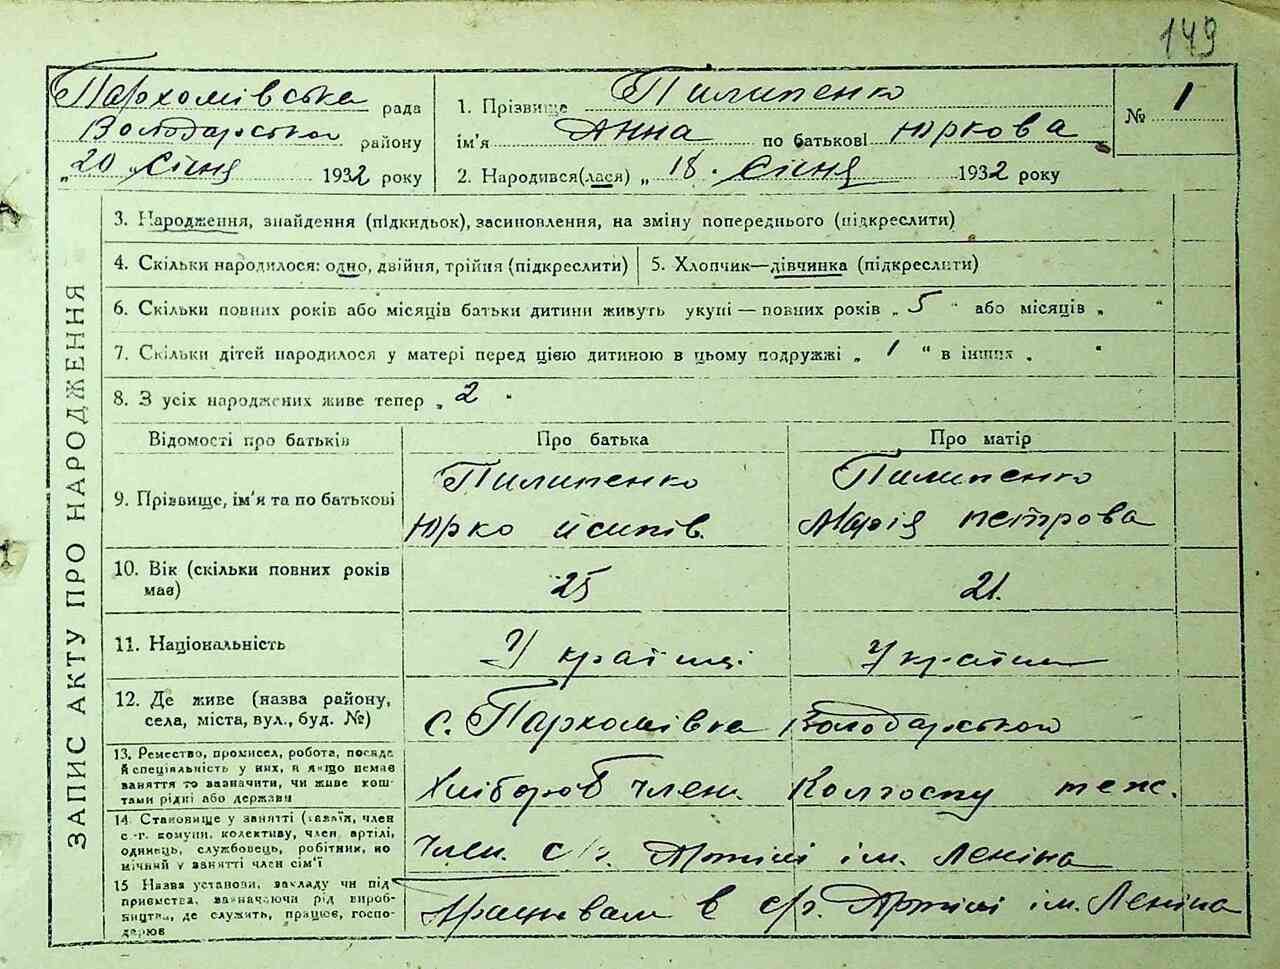 149
Пархомівська рада
Володарського району
„20 „ Січня 1932 року
1. Прізвище Пилипенко
ім'я Анна по батькові Юркова
2. Народився(лася) „ 18 . Січня 1932 року
№ 1
ЗАПИС АКТУ ПРО НАРОДЖЕННЯ
3. Народження, знайдення (підкидьок), засиновлення, на зміну попереднього (підкреслити)
4. Скільки народилося: одно, двійня, трійня (підкреслити)
5. Хлопчик—дівчинка (підкреслити)
6. Скільки повних років або місяців батьки дитини живуть укупі — повних років „ 5 " або місяців „ "
7. Скільки дітей народилося у матері перед цією дитиною в цьому подружжі „ 1 " в інших „ "
8. З усіх народжених живе тепер „ 2 "
Відомості про батьків Про батька Про матір
9. Прізвище, ім'я та по батькові
Пилипенко
Юрко Йсипів.
Пилипенко
Марія Петрова
10. Вік (скільки повних років
має)
25 21.
11. Національність
Українц. Україн
12. Де живе (назва району,
села, міста, вул., буд. №)
с. Пархомівка Володарського
13. Ремество, промисел, робота, посада
й спеціяльність у них, а якщо немає
заняття то зазначити, чи живе кош-
тами рідні або держави
Хлібороб член. Колгоспу теж.
14 Становище у занятті (хазяїн, член
с.-г. комуни, колективу, член артілі,
одинець, службовець, робітник, по
мічний у занятті член сім'ї
Член. с/г. Артілі ім. Леніна
15 Назва установи, закладу чи під
приємства, зазначаючи рід вироб-
ництва, де служить, працює, госпо-
дарює
в с/г. Артілі ім. Леніна